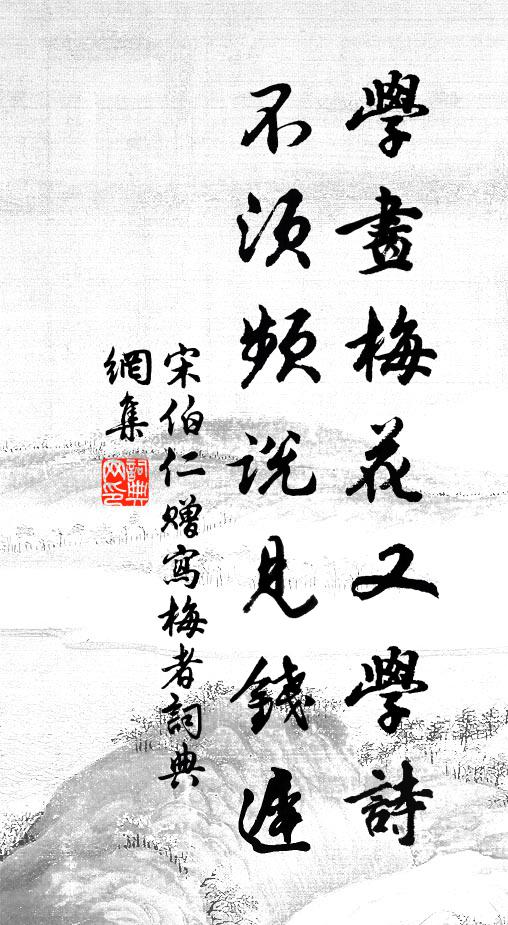 學畫梅花又學詩
不須頻說見錢遲
宋伯仁贈寫梅者詞典
網集
詞典
网印